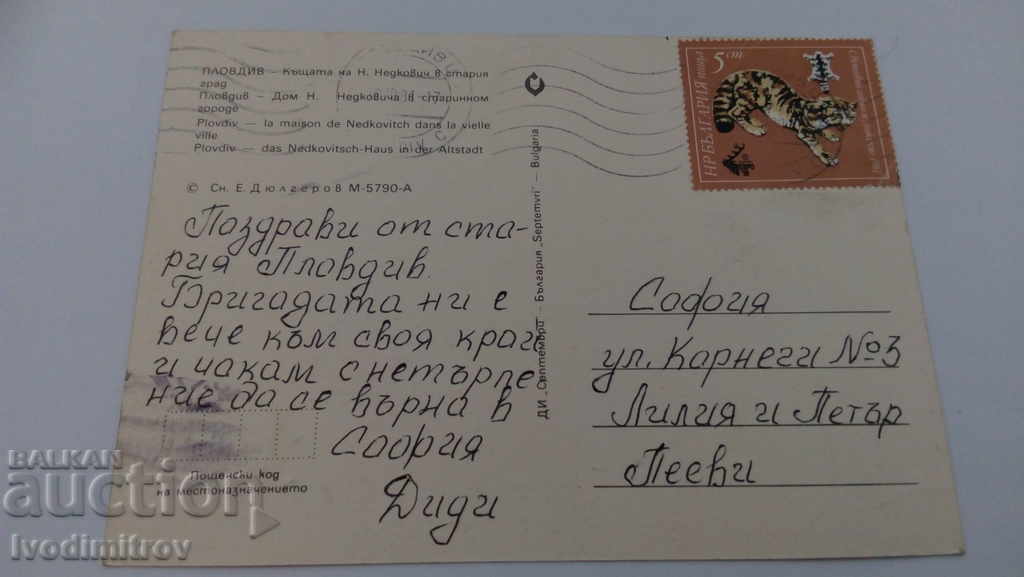 ПЛОВДИВ – Къщата на Н. Недкович в стария
град
Пловдив – Дом Н. Недковича в старинном
городе
Plovdiv – la maison de Nedkovitch dans la vielle
ville
Plovdiv – das Nedkovitsch-Haus in der Altstadt
© Сн. Е. Дюлгеров М-5790-А
Поздрави от ста-
рия Пловдив.
Бригадата ни е
вече към своя край
и чакам с нетърпе
ние да се върна в
София
Диди
Пощенски код
на местоназначението
ДИ „Септември" – България „Septemvri" – Bulgaria
5 ст
НР БЪЛГАРИЯ поща
София
ул. Карнеги №3
Лилия и Петър
Пееви
BALKAN
auction
Ivodimitrov